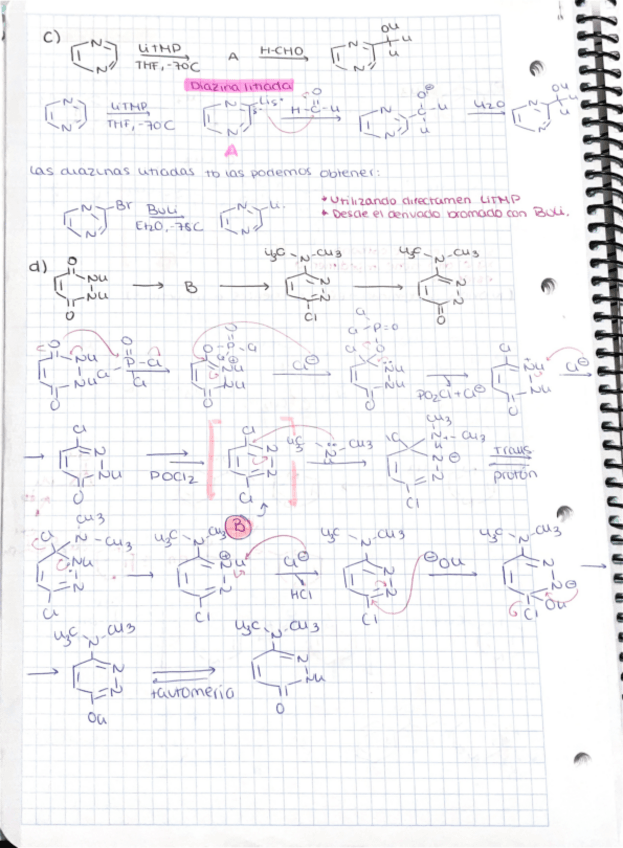 c) N N LiTMP THF, -70C A H-CHO N N OH H H
Diazina litiada
N N LiTMP THF, -70C N N Li H-C-H O N N O⊖ C-H H H2O N N OH H H
A
Las diazinas litiadas tb las podemos obtener:
N N Br BuLi Et2O, -78C N N Li
* Utilizando directamen LiTMP
* Desde el derivado bromado con BuLi.
d) O NH NH O B H3C N CH3 N N Cl H3C N CH3 N N O
O NH NH O O Cl P Cl Cl O P Cl Cl O NH NH O Cl⊖ Cl Cl P=O O Cl NH NH O PO2Cl + Cl⊖ Cl NH NH O Cl⊖
Cl N NH O POCl2 Cl N N Cl H3C N CH3 Cl CH3 N CH3 H N N⊖ Cl Trans protón
B
Cl CH3 N CH3 NH N Cl H3C N CH3 ⊕ N H N Cl Cl⊖ HCl H3C N CH3 N N Cl ⊖OH H3C N CH3 N N⊖ OH Cl
H3C N CH3 N N OH tautomeria H3C N CH3 N NH O